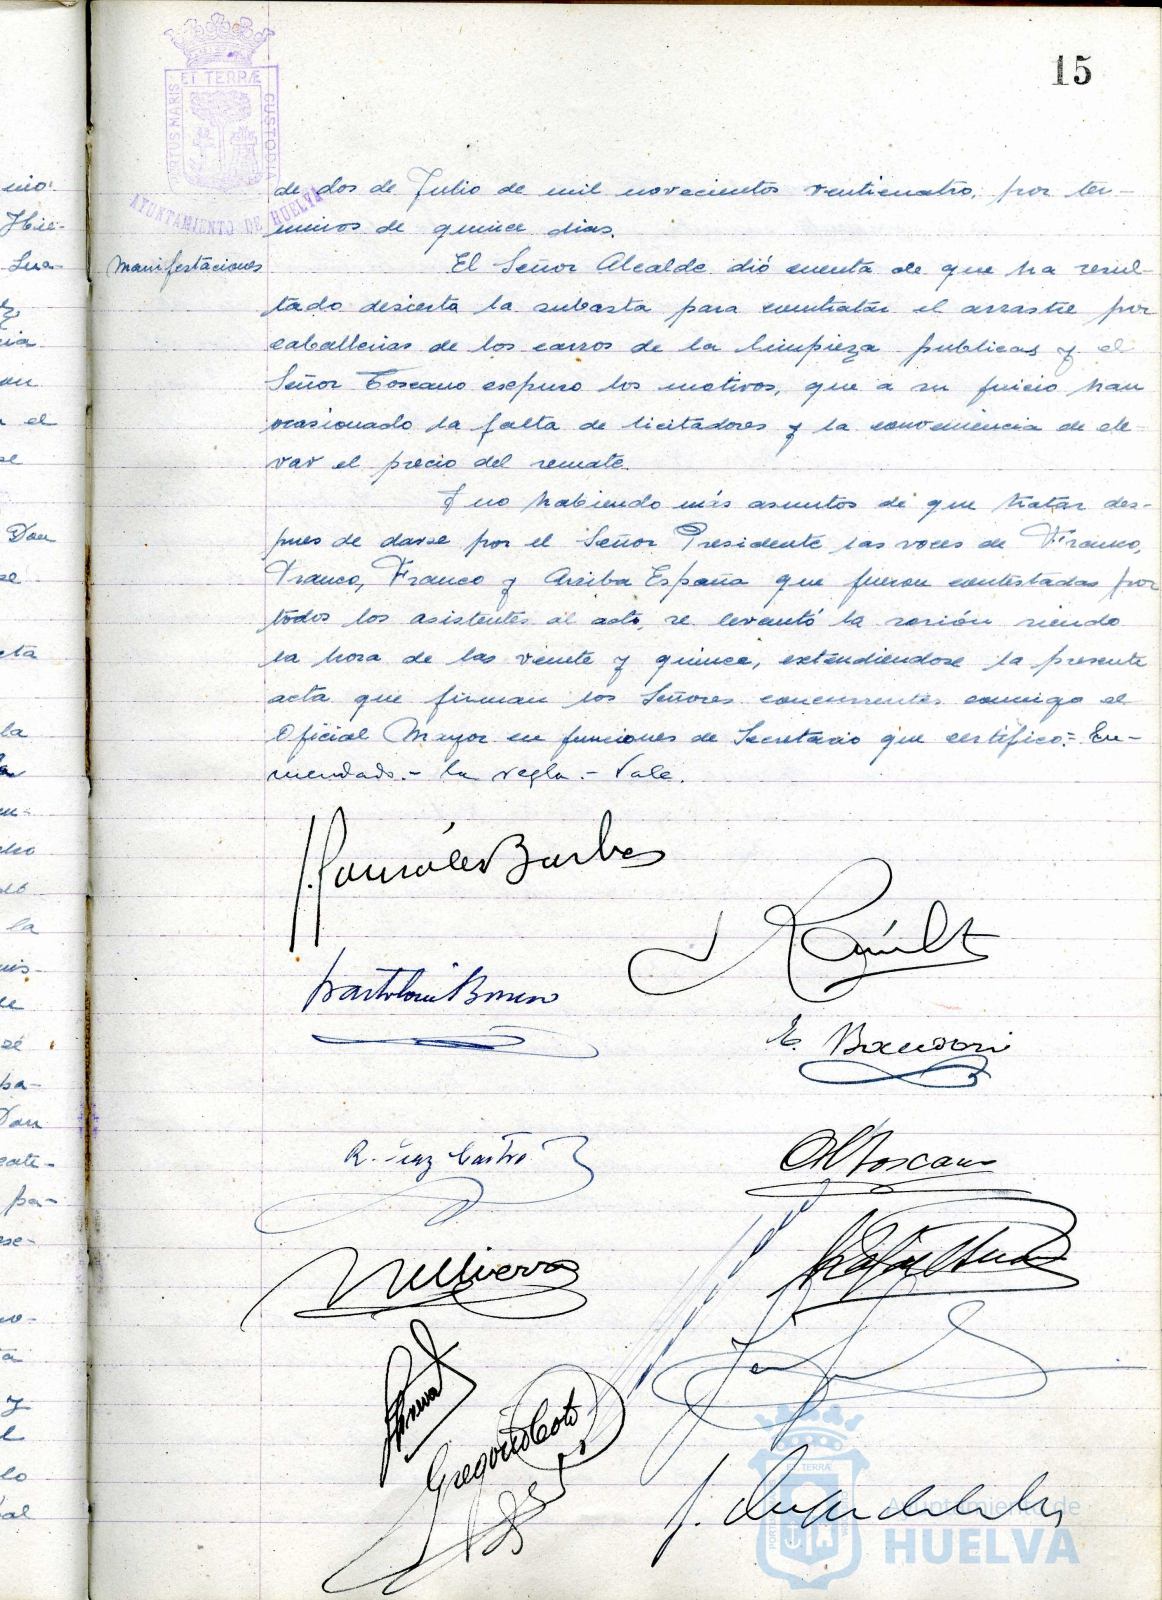 15
ET TERRÆ
CUSTODIA
AYUNTAMIENTO DE HUELVA
de dos de Julio de mil novecientos venticuatro, por ter-
minos de quince dias.
Manifestaciones
El Señor Alcalde dió cuenta de que ha resul-
tado desierta la subasta para contratar el arrastre por
caballerias de los carros de la limpieza publicas y el
Señor Toscano expuso los motivos, que a su juicio han
ocasionado la falta de licitadores y la conveniencia de ele-
var el precio del remate.
Y no habiendo más asuntos de que tratar des-
pues de darse por el Señor Presidente las voces de Franco,
Franco, Franco y Arriba España que fueron contestadas por
todos los asistentes al acto, se levantó la sesión siendo
la hora de las veinte y quince, extendiendose la presente
acta que firman los Señores concurrentes conmigo el
Oficial Mayor en funciones de Secretario que certifico:= En-
mendado.- la regla.- Vale.
Gregorio Coto
Ayuntamiento de
HUELVA